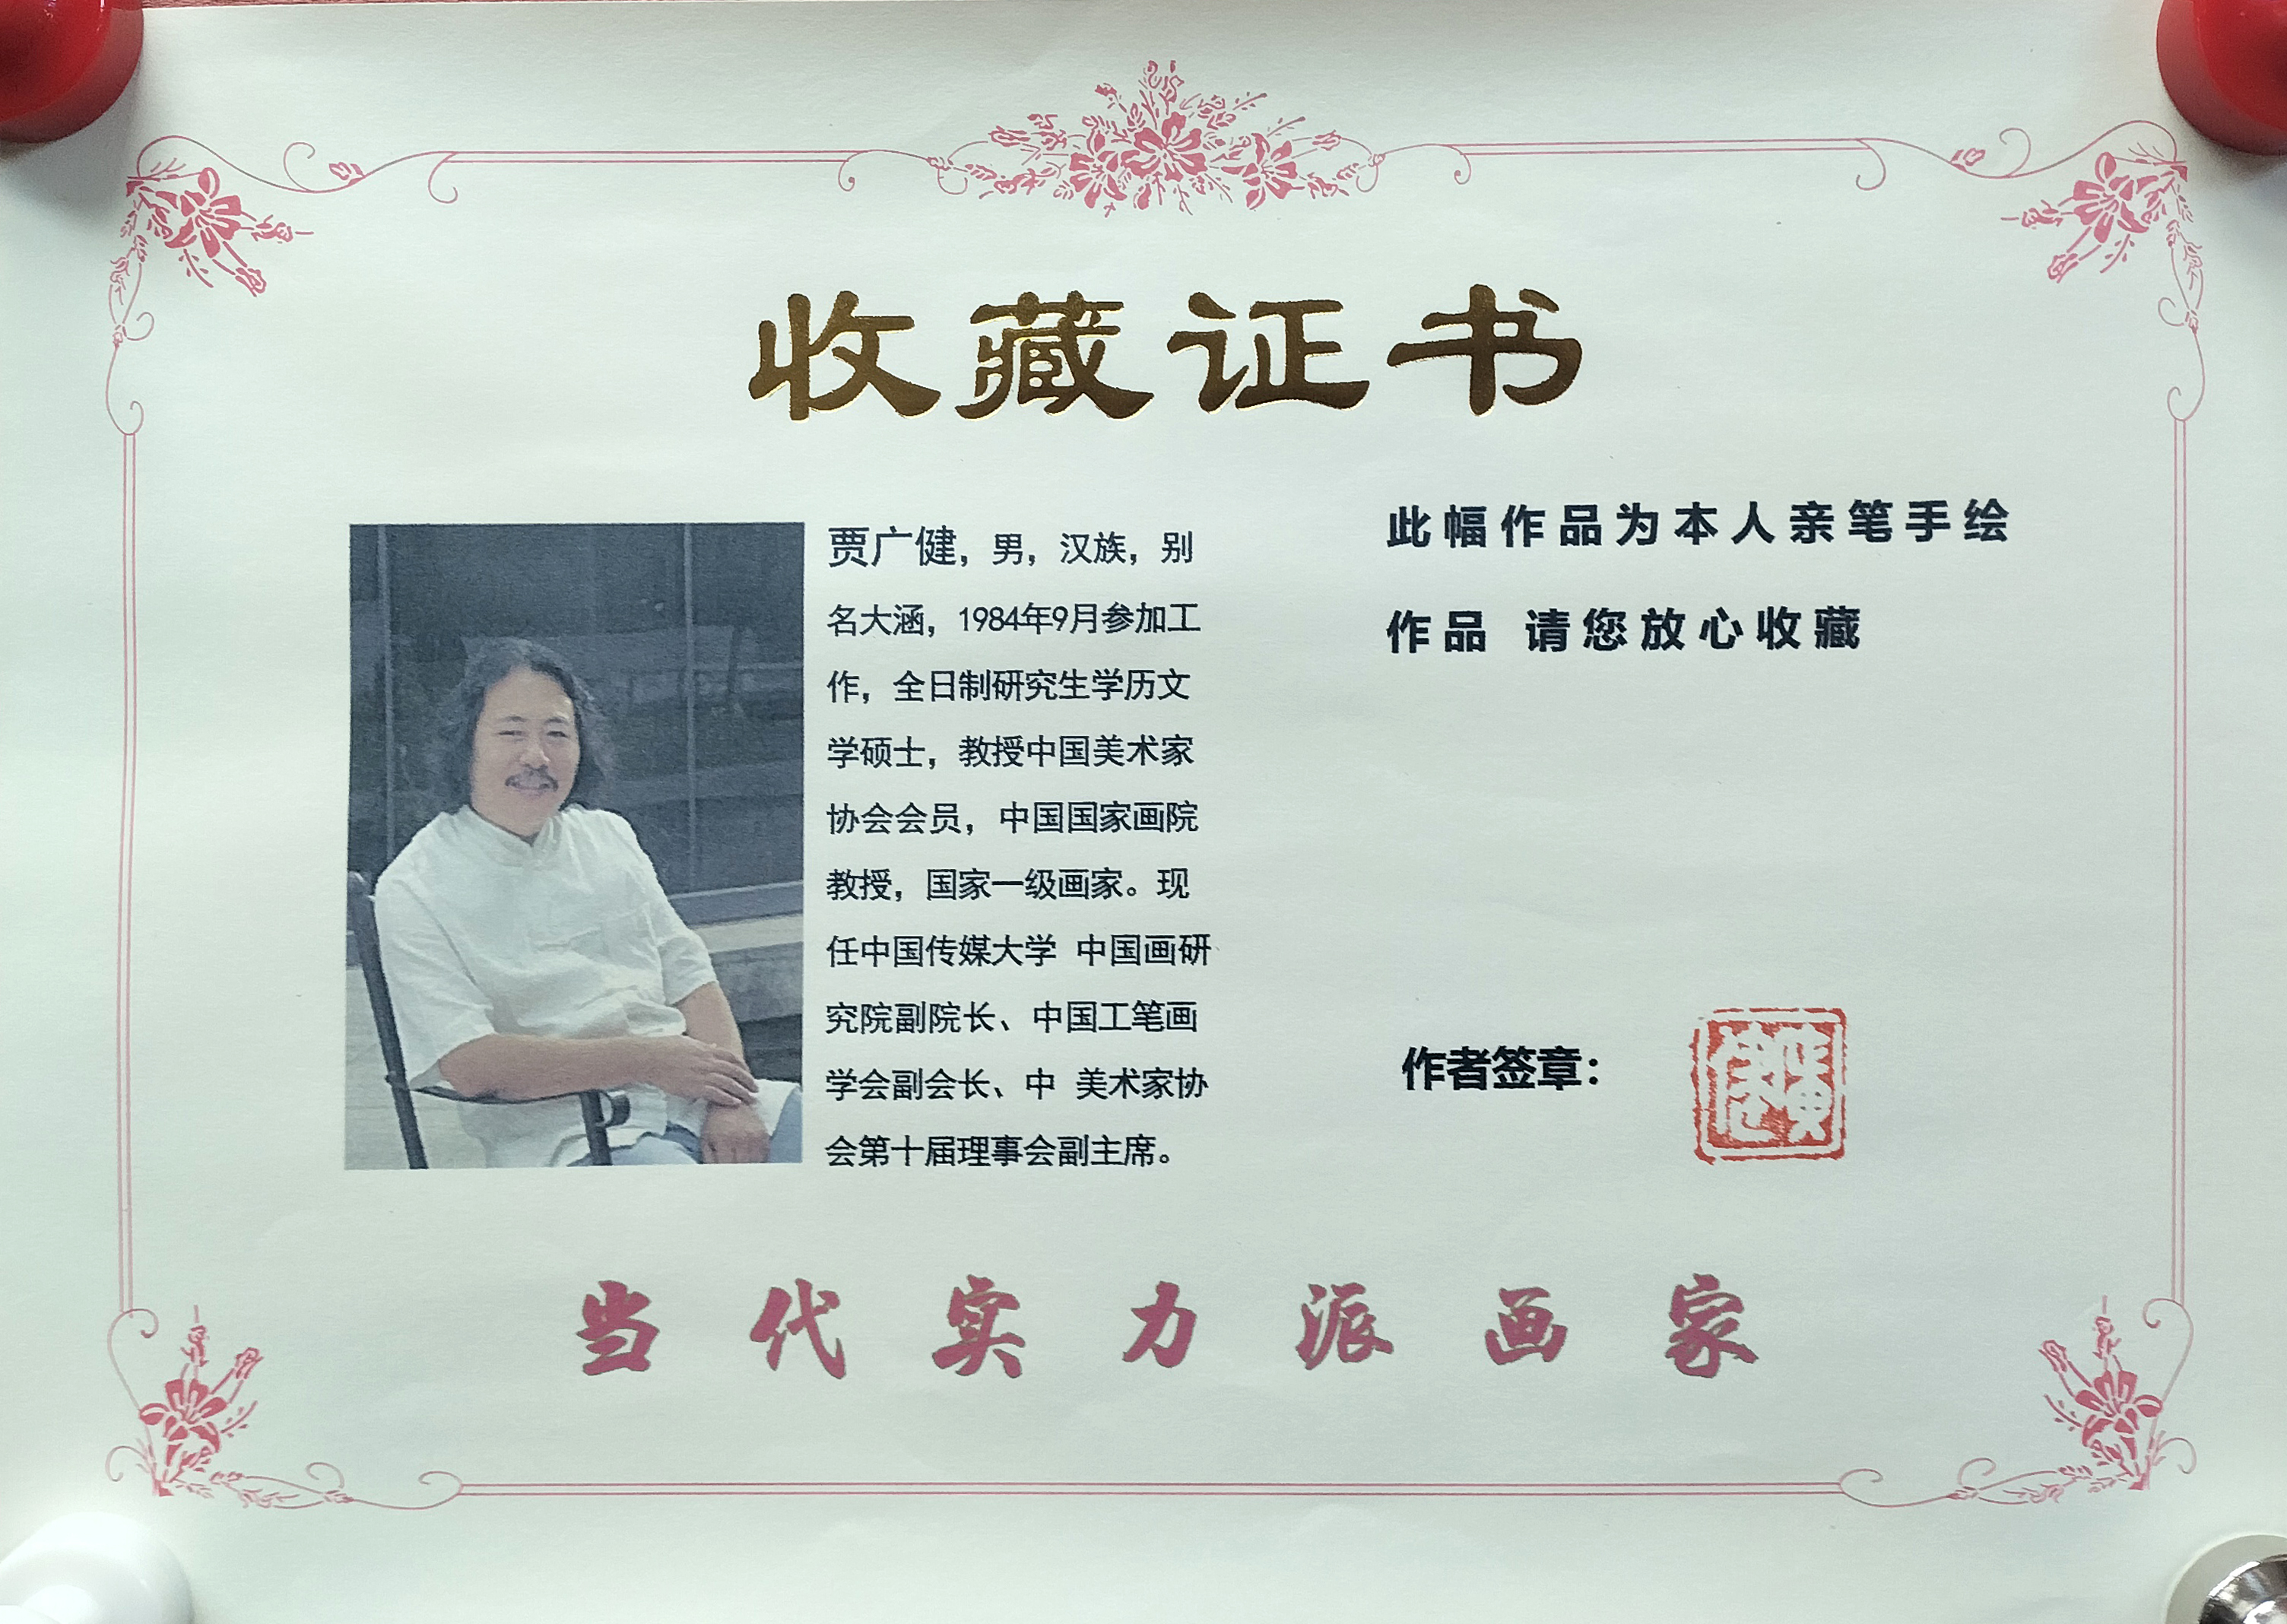 收藏证书
贾广健，男，汉族，别
名大涵，1984年9月参加工
作，全日制研究生学历文
学硕士，教授中国美术家
协会会员，中国国家画院
教授，国家一级画家。现
任中国传媒大学 中国画研
究院副院长、中国工笔画
学会副会长、中 美术家协
会第十届理事会副主席。
此幅作品为本人亲笔手绘
作品 请您放心收藏
作者签章：
当代实力派画家